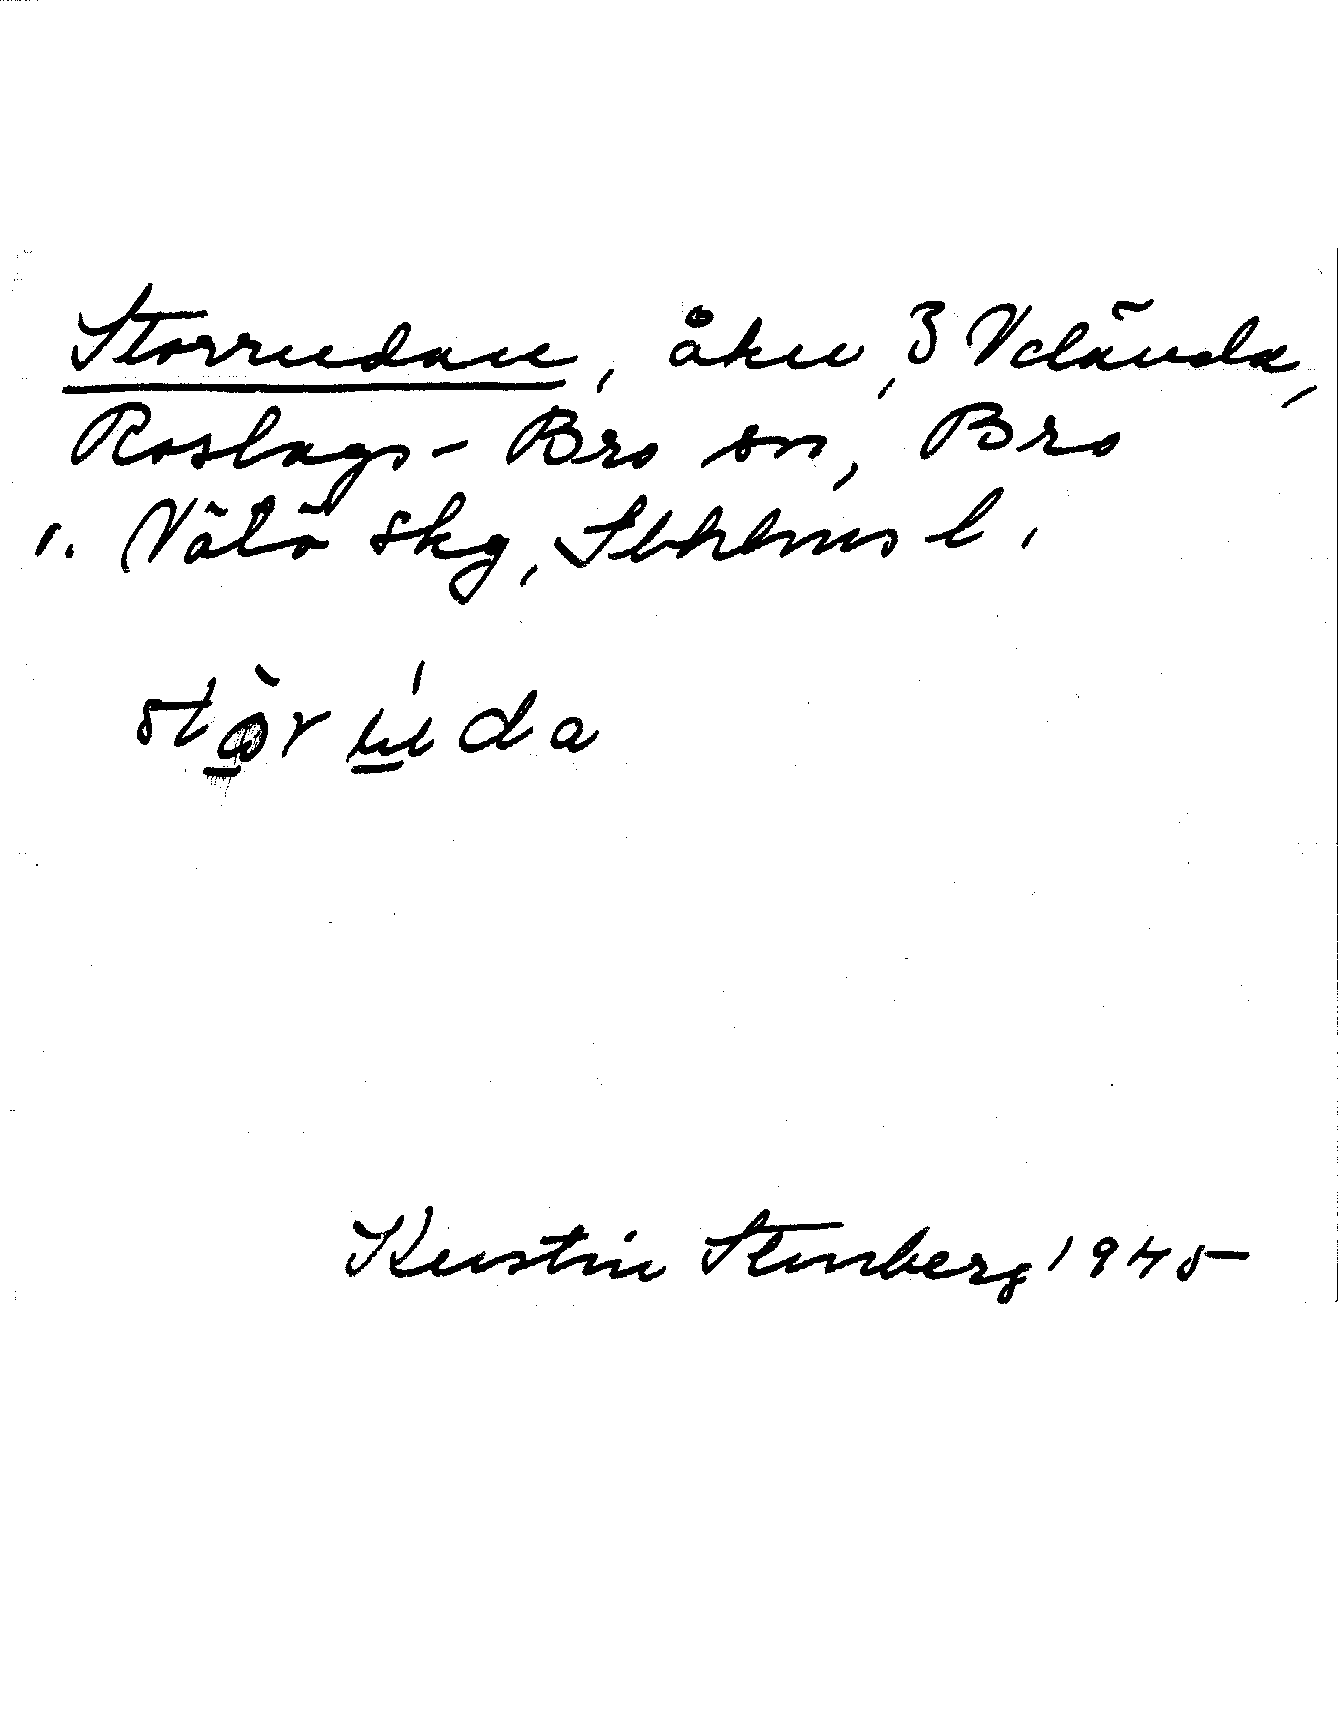 Storrudan, åker, 3 Veländа,
Roslags-Bro sn, Bro
o. Vätö skg, Sthlms l.
stò̱r u̱̍da
Kerstin Stenberg 1945